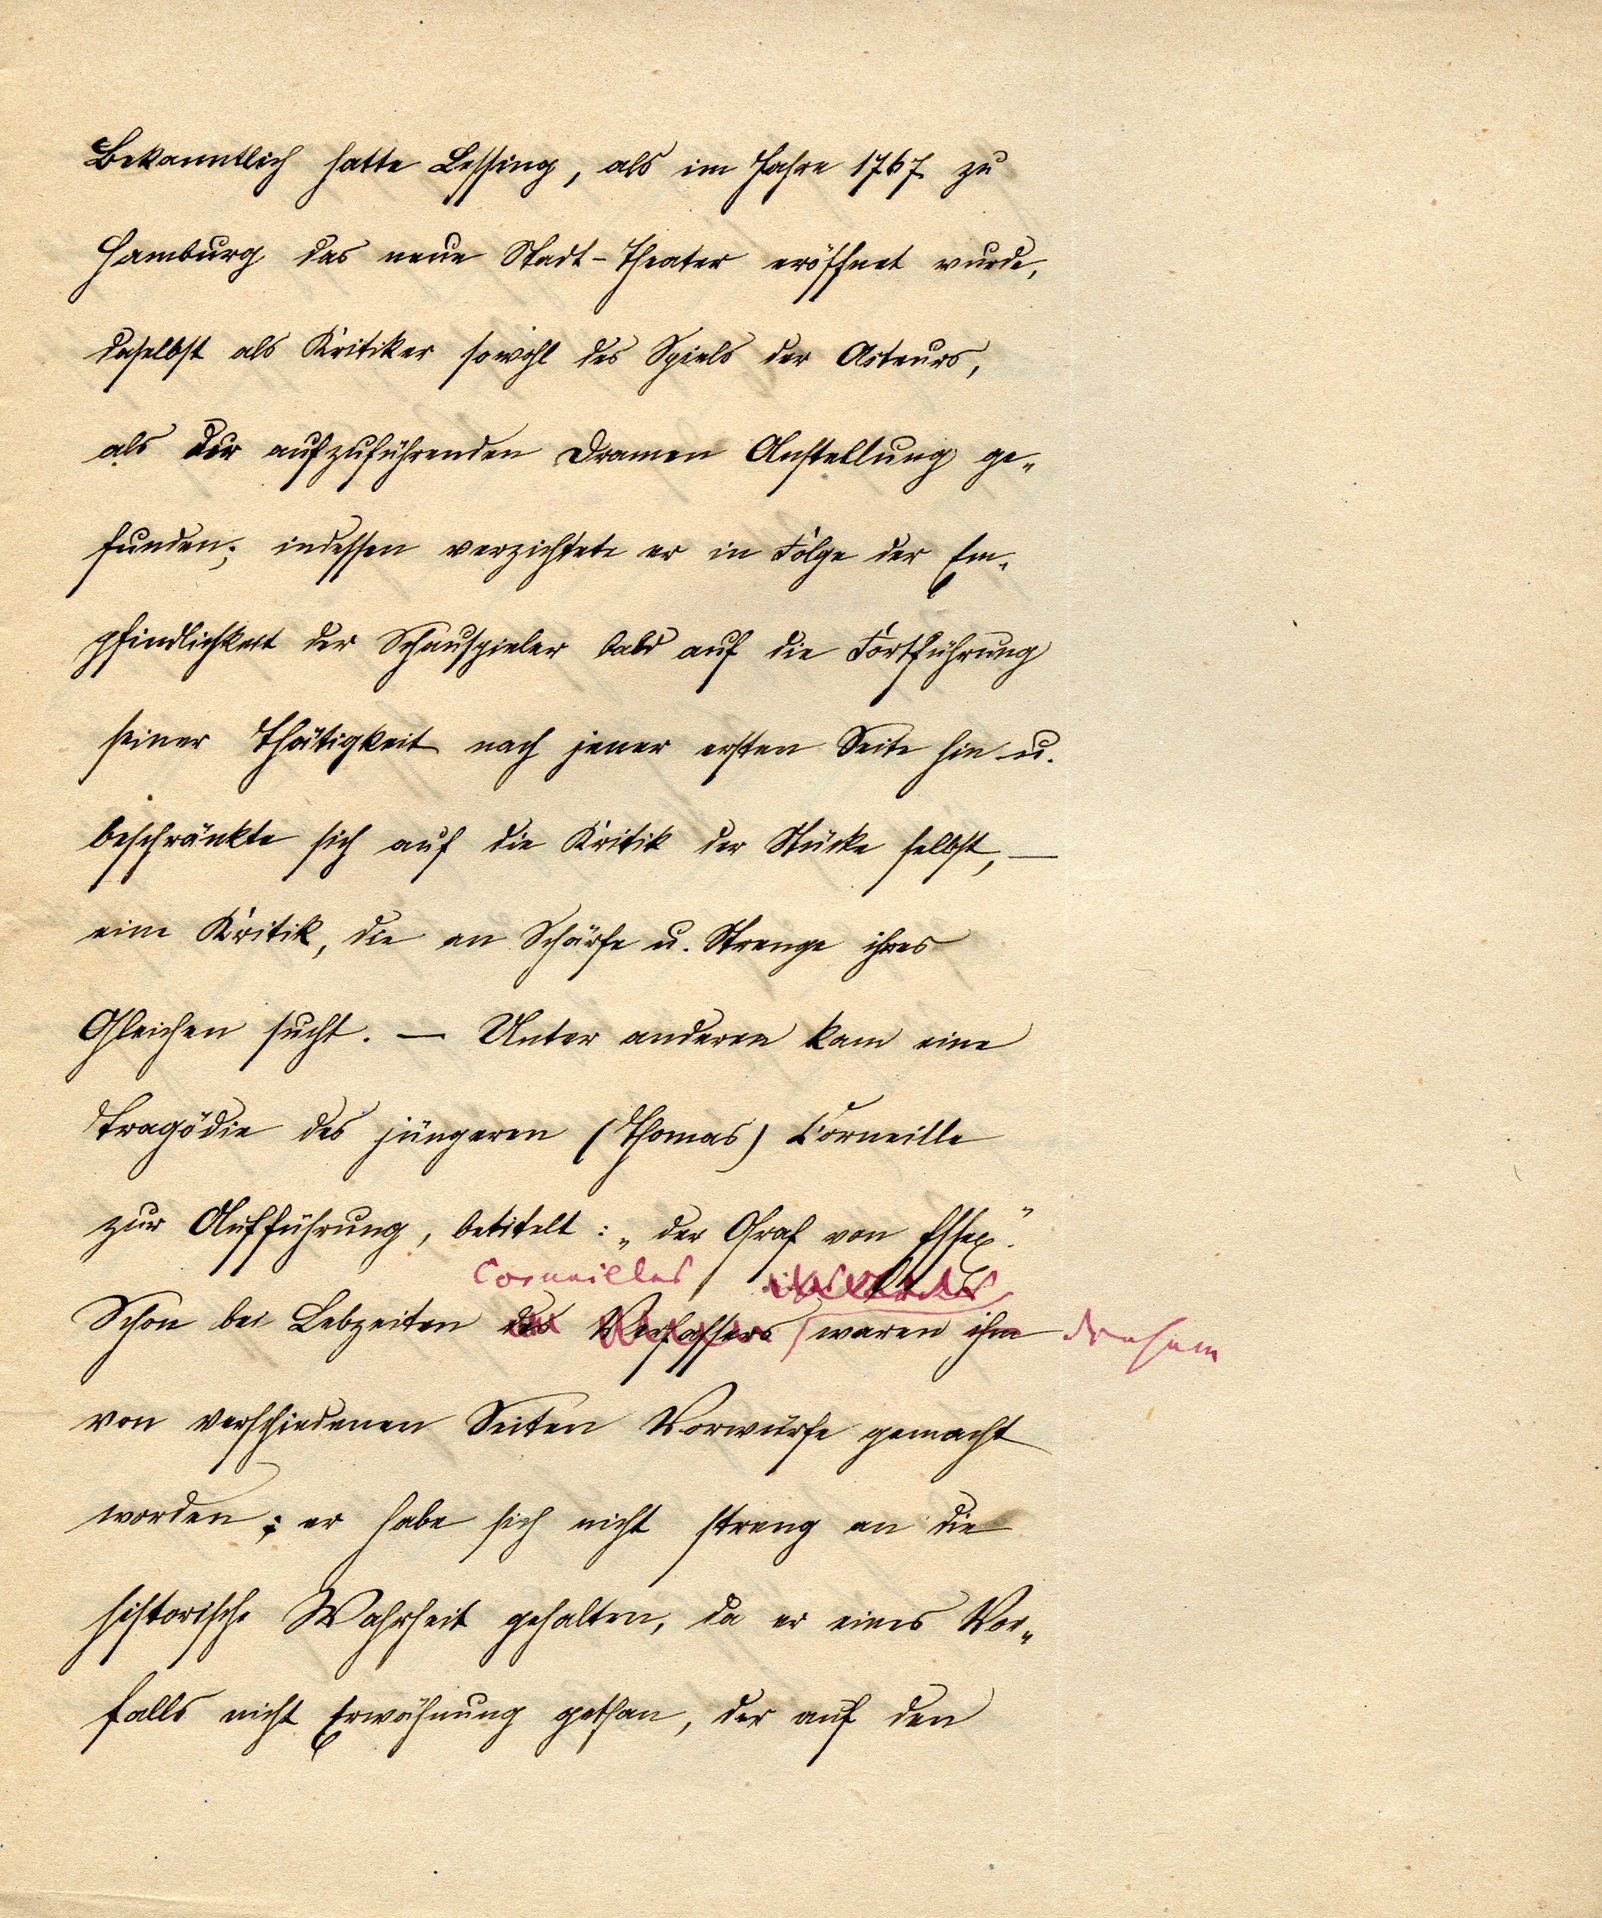 Bekanntlich hatte Lessing, als im Jahre 1767 zu
Hamburg das neue Stadt-Theater eröffnet wurde,
daselbst als Kritiker sowohl des Spiels der Acteurs,
als der aufzuführenden Dramen Anstellung ge-
funden; indessen verzichtete er in Folge der Em-
pfindlichkeit der Schauspieler bald auf die Fortführung
seiner Thätigkeit nach jener ersten Seite hin u.
beschränkte sich auf die Kritik der Stücke selbst, —
eine Kritik, die an Schärfe u. Strenge ihres
Gleichen sucht. — Unter anderen kam eine
Tragödie des jüngeren (Thomas) Corneille
zur Aufführung, betitelt: „der Graf von Essex".
Corneilles
Schon bei Lebzeiten des Verfassers waren ihm
von verschiedenen Seiten Vorwürfe gemacht
worden; er habe sich nicht streng an die
historische Wahrheit gehalten, da er eines Vor-
falls nicht Erwähnung gethan, der auf den